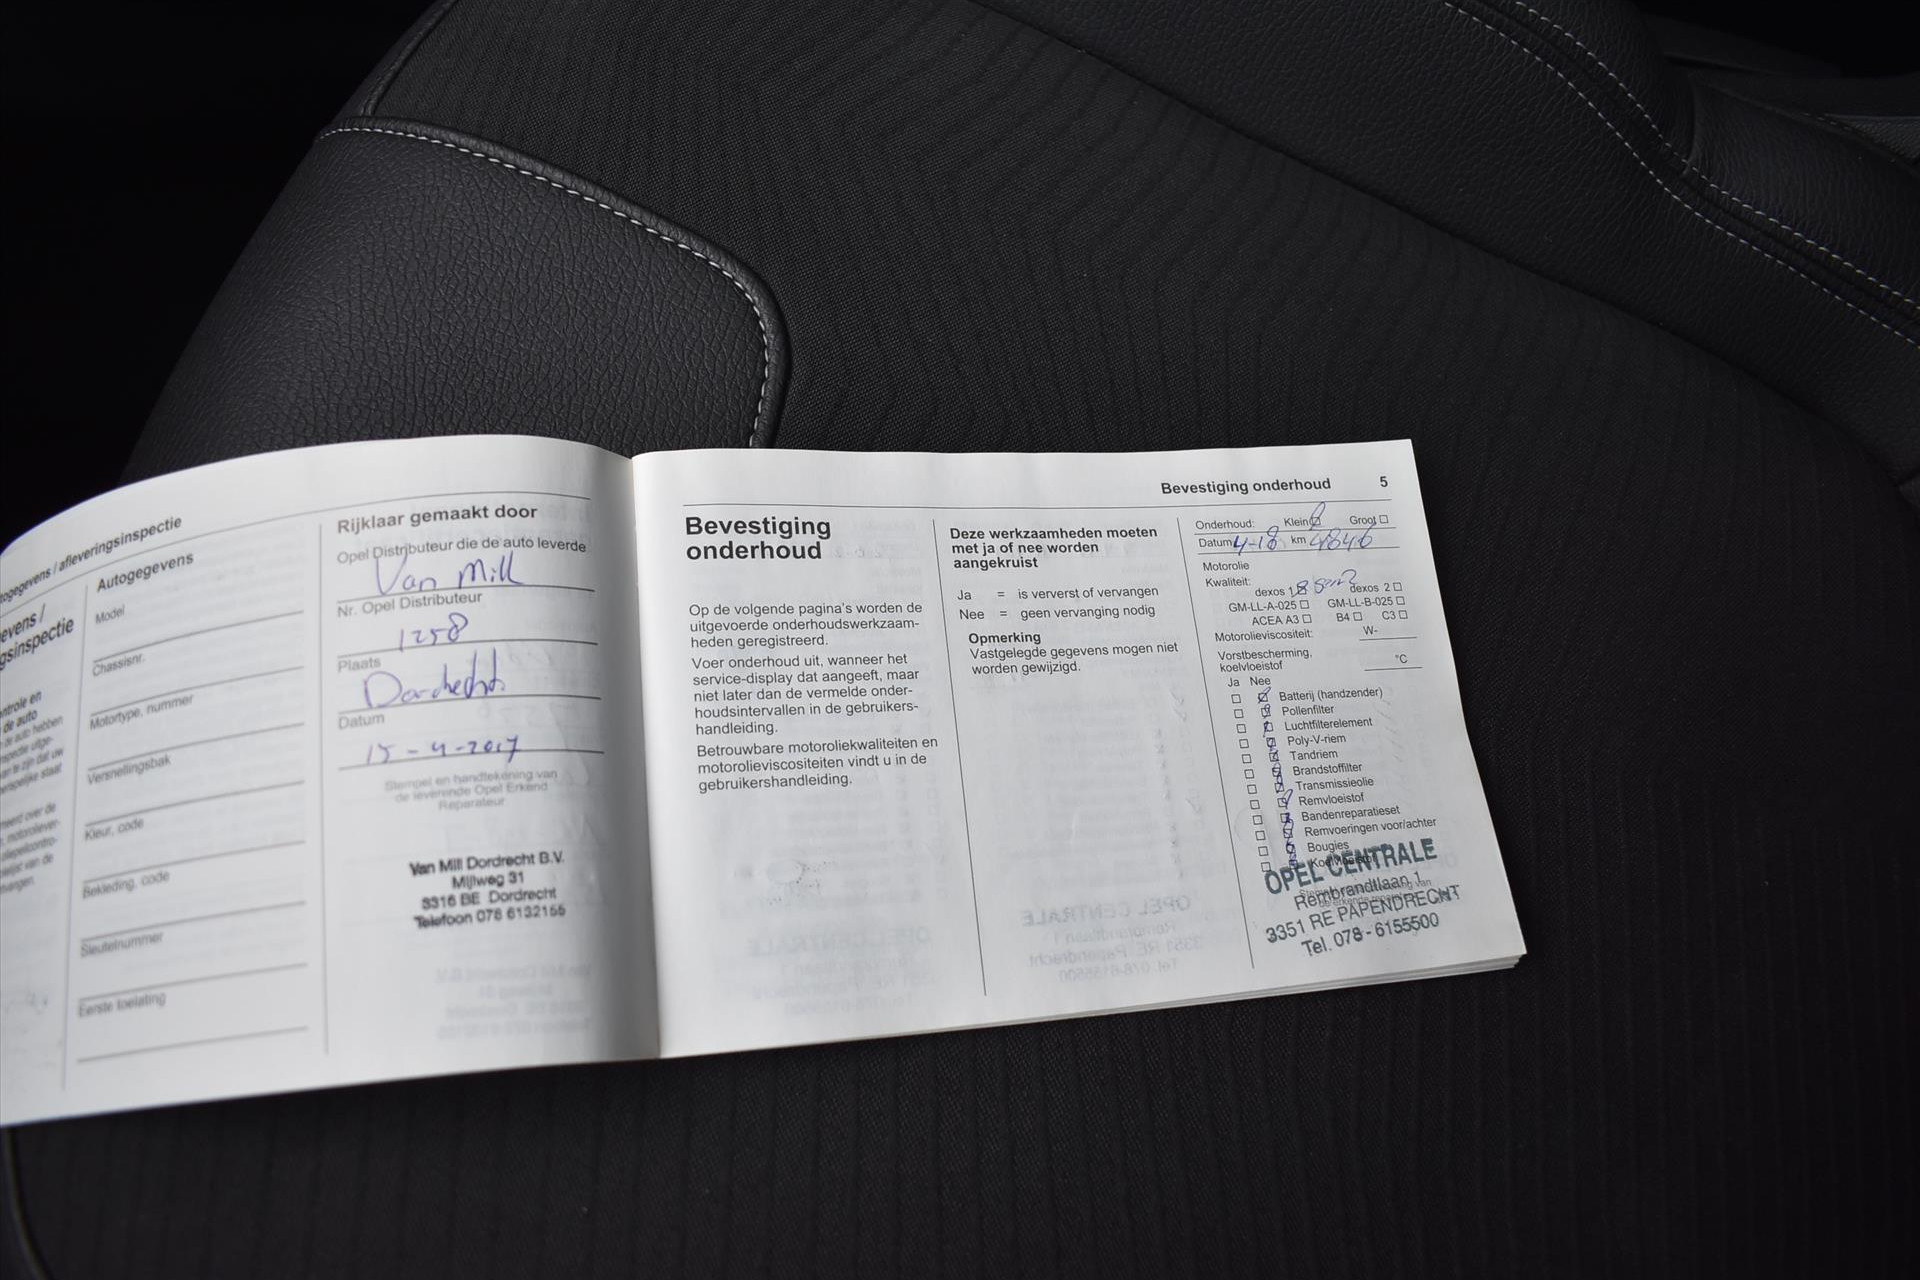 Autogegevens / afleveringsinspectie
Autogegevens
Model
Chassisnr.
Motortype, nummer
Versnellingsbak
Kleur, code
Bekleding, code
Sleutelnummer
Eerste toelating
Rijklaar gemaakt door
Opel Distributeur die de auto leverde
Van Mill
Nr. Opel Distributeur
1258
Plaats
Dordrecht
Datum
15-4-2017
Stempel en handtekening van
de leverende Opel Erkend
Reparateur
Van Mill Dordrecht B.V.
Mijlweg 31
3316 BE Dordrecht
Telefoon 078 6132155
Bevestiging onderhoud 5
Bevestiging
onderhoud
Op de volgende pagina's worden de
uitgevoerde onderhoudswerkzaam-
heden geregistreerd.
Voer onderhoud uit, wanneer het
service-display dat aangeeft, maar
niet later dan de vermelde onder-
houdsintervallen in de gebruikers-
handleiding.
Betrouwbare motoroliekwaliteiten en
motorolieviscositeiten vindt u in de
gebruikershandleiding.
Deze werkzaamheden moeten
met ja of nee worden
aangekruist
Ja = is ververst of vervangen
Nee = geen vervanging nodig
Opmerking
Vastgelegde gegevens mogen niet
worden gewijzigd.
Onderhoud: Klein Groot
Datum 4-18 km 4846
Motorolie
Kwaliteit:
dexos 1 dexos 2
GM-LL-A-025 GM-LL-B-025
ACEA A3 B4 C3
Motorolieviscositeit: W-
Vorstbescherming,
koelvloeistof °C
Ja Nee
Batterij (handzender)
Pollenfilter
Luchtfilterelement
Poly-V-riem
Tandriem
Brandstoffilter
Transmissieolie
Remvloeistof
Bandenreparatieset
Remvoeringen voor/achter
Bougies
OPEL CENTRALE
Rembrandtlaan 1
3351 RE PAPENDRECHT
Tel. 078 - 6155500